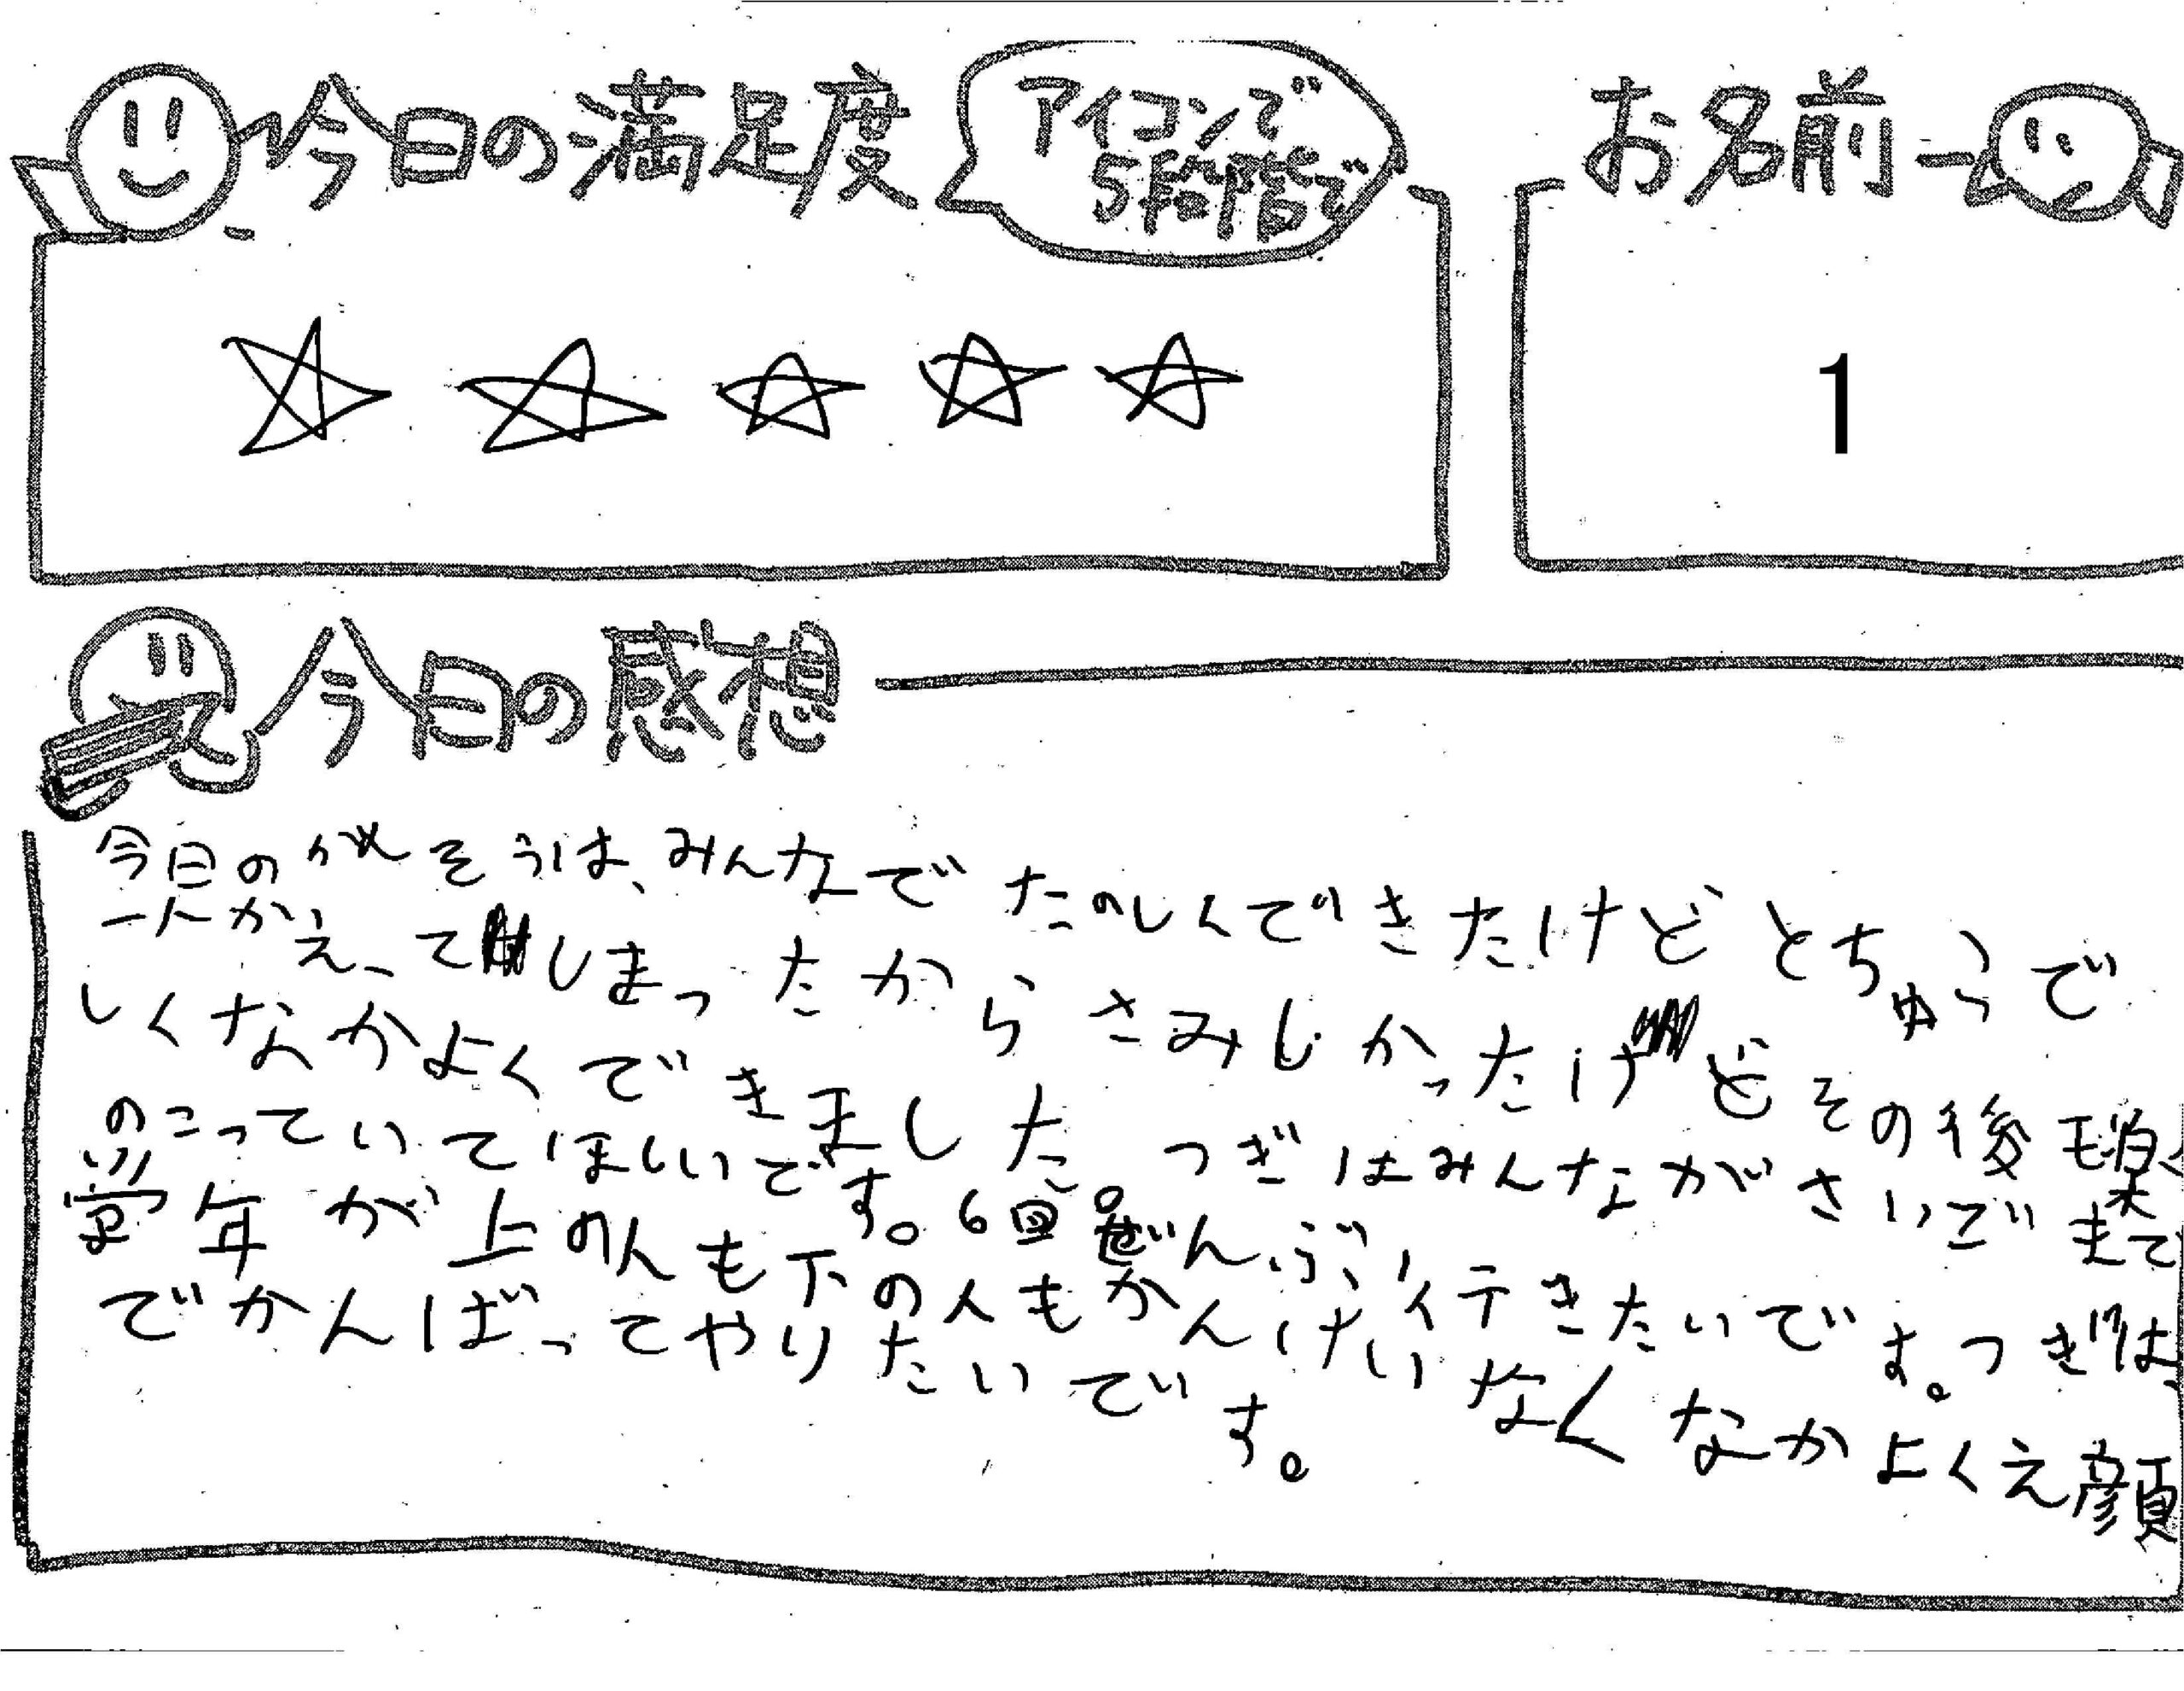 今日の満足度
アイコンで
5段階で
お名前
1
今日の感想
今日のがんそうは、みんなでたのしくできたけどとちゅうで
一人かえってしまったからさみしかったけどその後も楽
しくなかよくできました。つぎはみんながさいごまで
のこっていてほしいです。6回ぜんぶ行きたいです。つぎは、
学年が上の人も下の人もかんけいなくなかよくえ顔
でがんばってやりたいです。